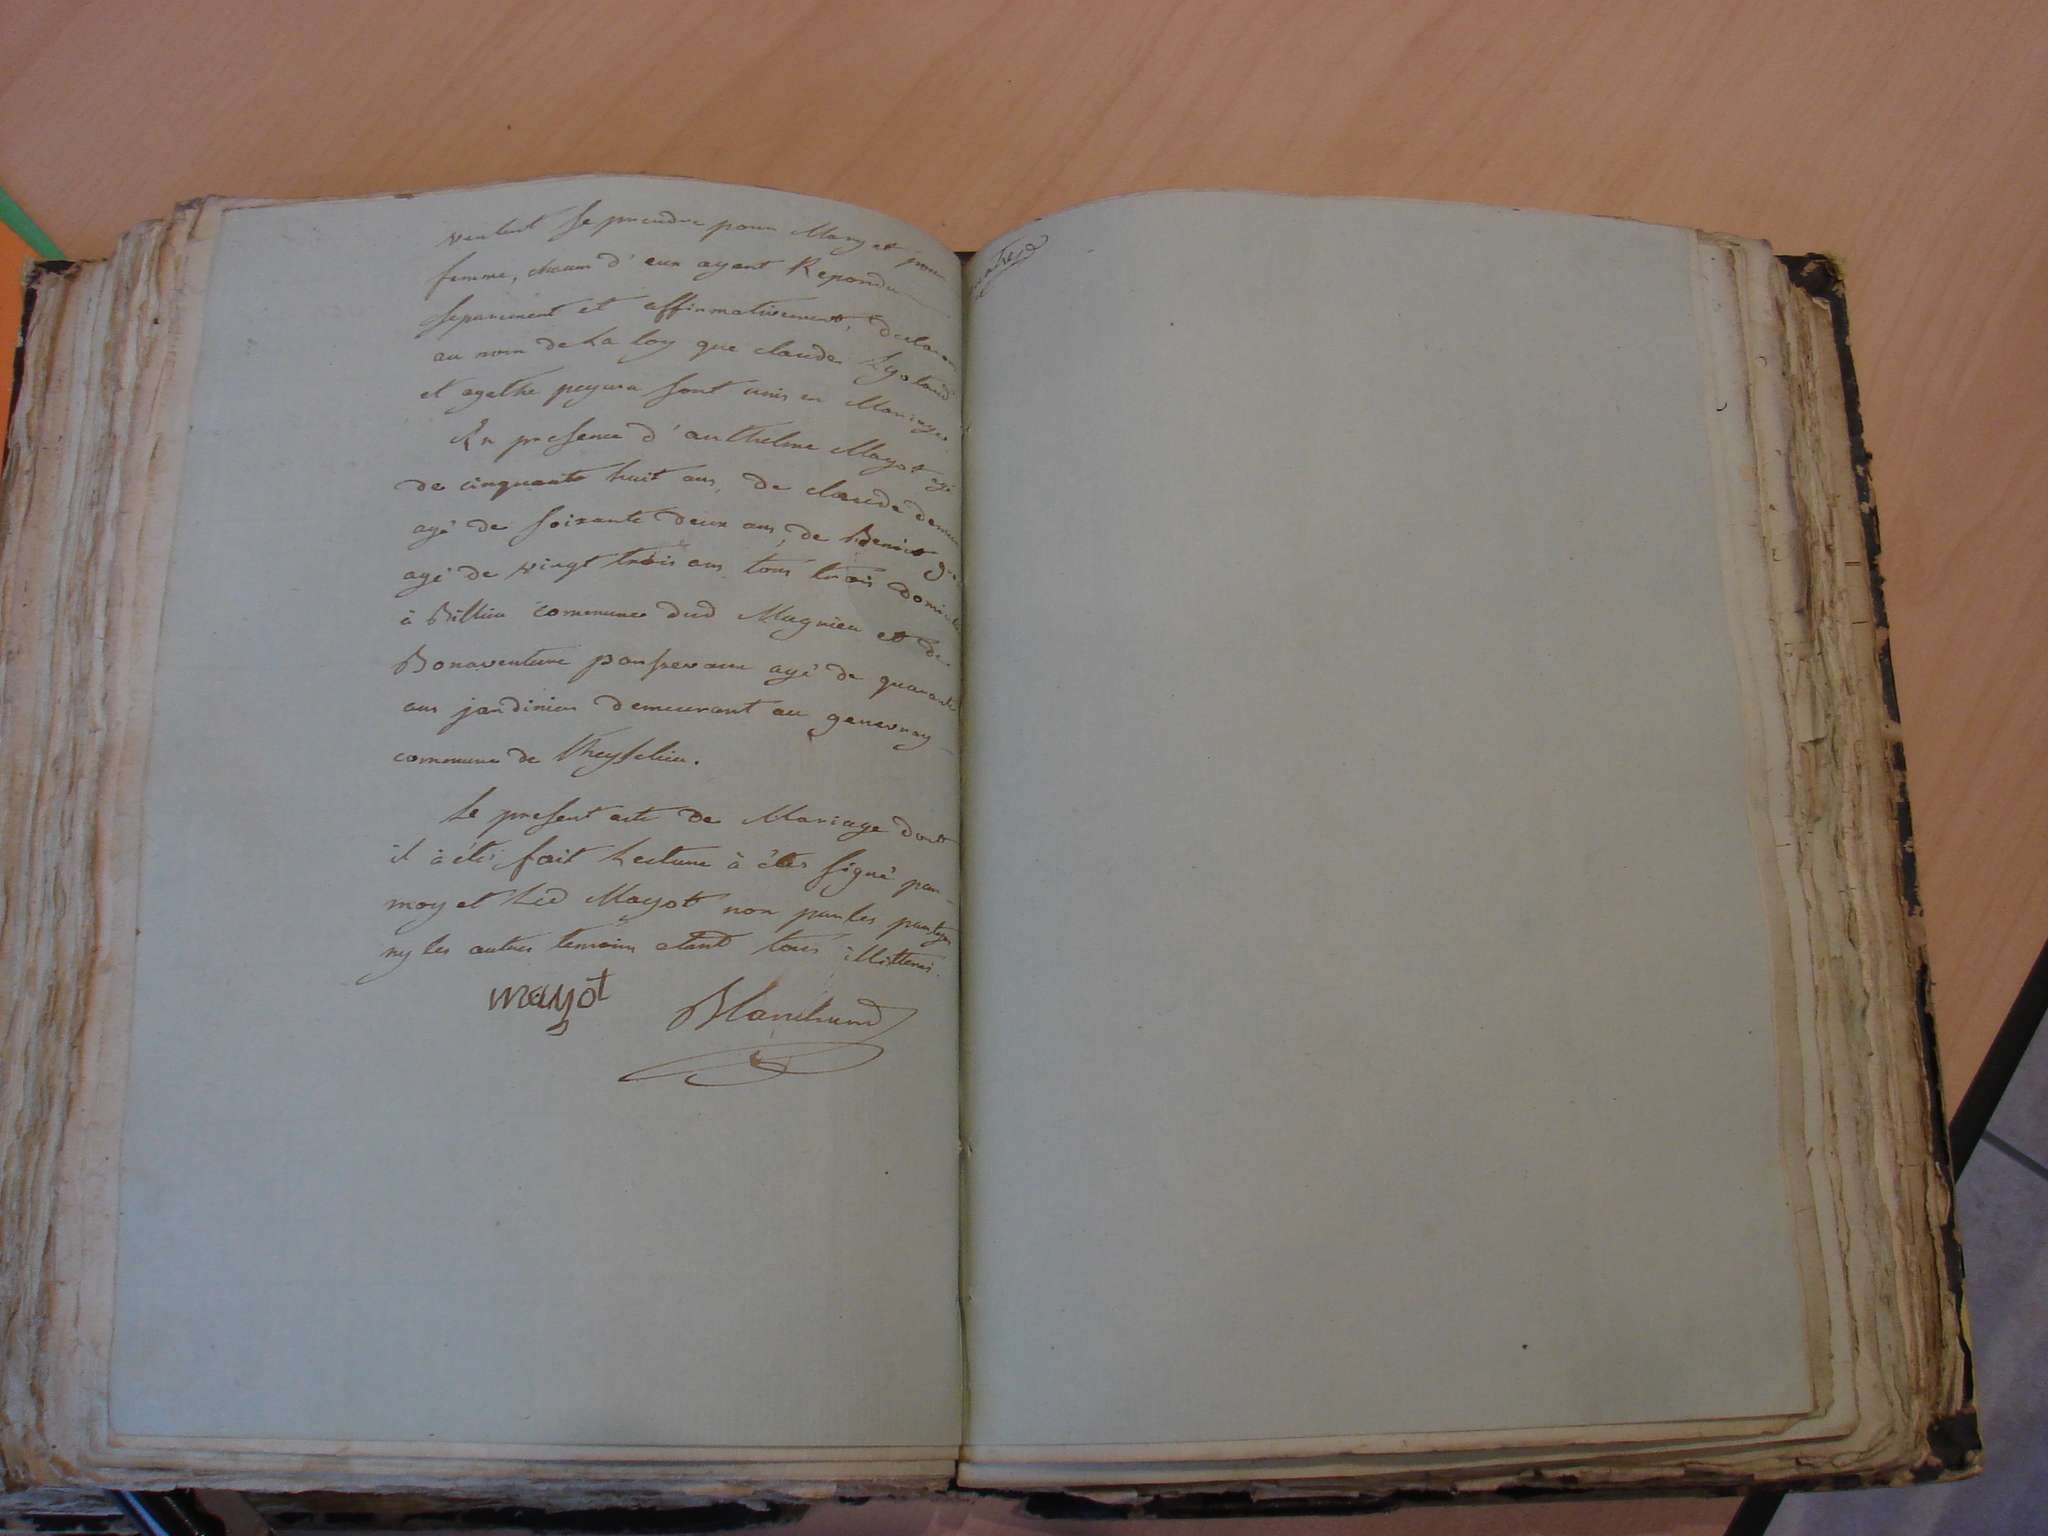 veulent se prendre pour Mary et pour
femme, chacun d'eux ayant Repondu
separement et affirmativement, declarons
au nom de La loy que claude Lyotard
et agathe peysson sont unis en Mariage
En presence d'anthelme Mayot agé
de cinquante huit ans, de claude
agé de soixante deux ans, de Benoit
agé de vingt trois ans tous trois
à Billieu commune dud Mugnieu et de
Bonaventure agé de quarante
ans jardinier demeurant au genevray
commune de theysselieu.
Le present acte de Mariage dont
il à étés fait Lecture à étés signé par
moy et Led Mayot non par les partyes
ny les autres temoins etant tous illitterés.
mayot Blanchard